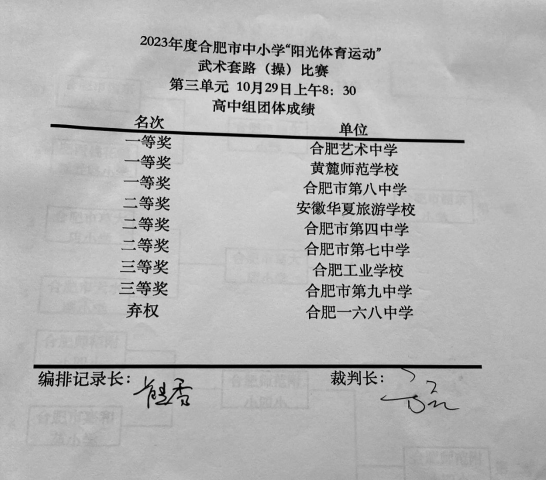 2023年度合肥市中小学“阳光体育运动”
武术套路（操）比赛
第三单元 10月29日上午8：30
高中组团体成绩
名次 单位
一等奖 合肥艺术中学
一等奖 黄麓师范学校
一等奖 合肥市第八中学
二等奖 安徽华夏旅游学校
二等奖 合肥市第四中学
二等奖 合肥市第七中学
三等奖 合肥工业学校
三等奖 合肥市第九中学
弃权 合肥一六八中学
编排记录长： 裁判长：